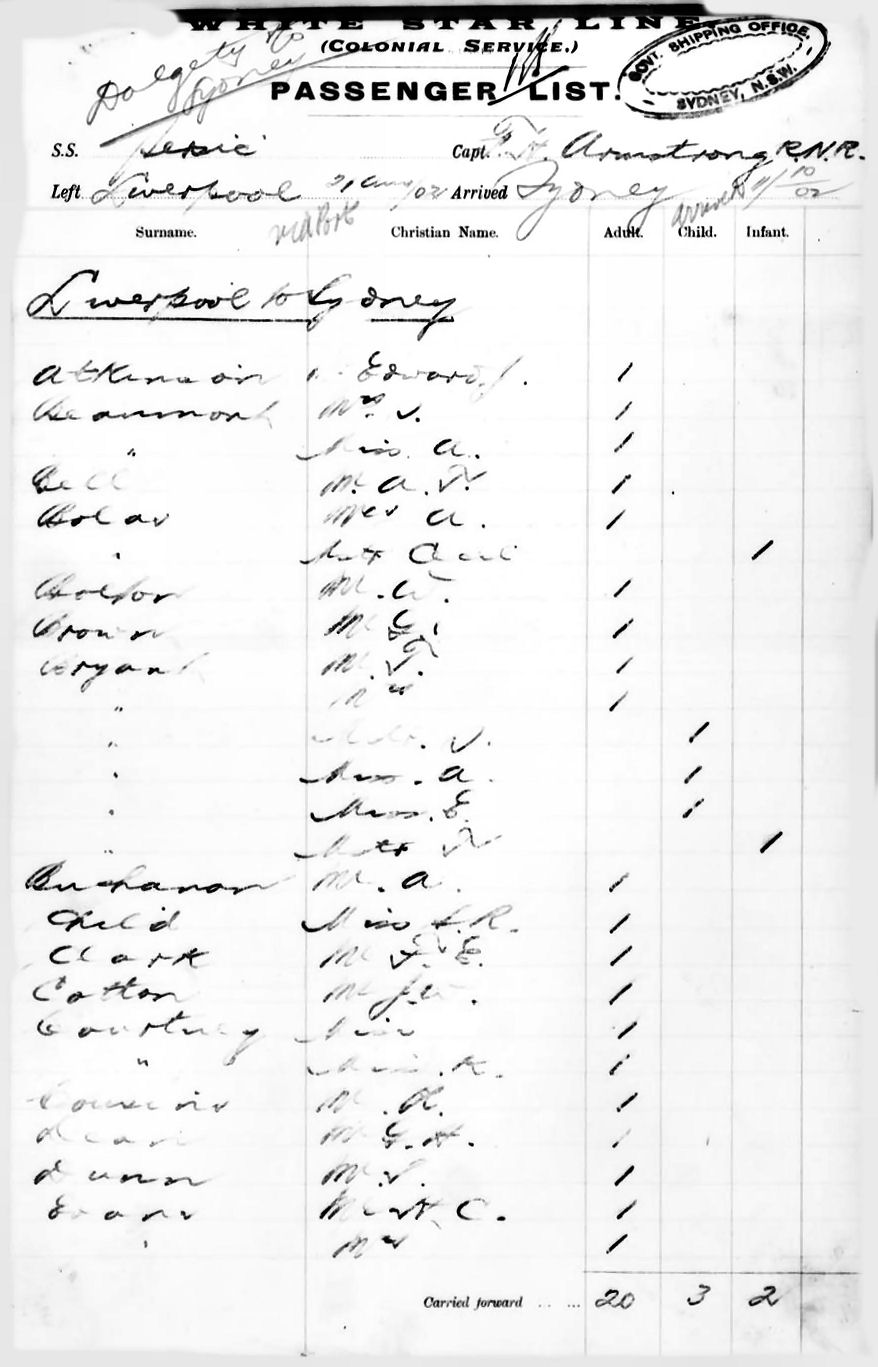 WHITE STAR LINE
(COLONIAL SERVICE.)
Dalgety & Co
Sydney
PASSENGER LIST.
GOVT. SHIPPING OFFICE, SYDNEY, N.S.W.
S.S. Persic Capt. F. H. Armstrong R.N.R.
Left Liverpool 21 Aug/02 Arrived Sydney arrived 11/10/02
via Ports
Surname. Christian Name. Adult. Child. Infant.
Liverpool to Sydney
Atkinson Edward J. 1
Beaumont Mrs J. 1
" Miss. A. 1
Bell Mr. A. F. 1
Bolar Mrs A. 1
" Mstr Cecil 1
Bolton Mr. W. 1
Brown Mr G. 1
Bryant Mr. F. 1
" Mrs 1
" Mstr. J. 1
" Miss. A. 1
" Miss. E. 1
" Mstr F 1
Buchanan Mr. A. 1
Child Miss R. 1
Clark Mr F. E. 1
Cotton Mr J. W. 1
Courtney Miss 1
" Miss. K. 1
Cousins Mr. H. 1
Dean Mr G. H. 1
Dunn Mr. J. 1
Evans Mr H. C. 1
" Mrs 1
Carried forward ... ... 20 3 2